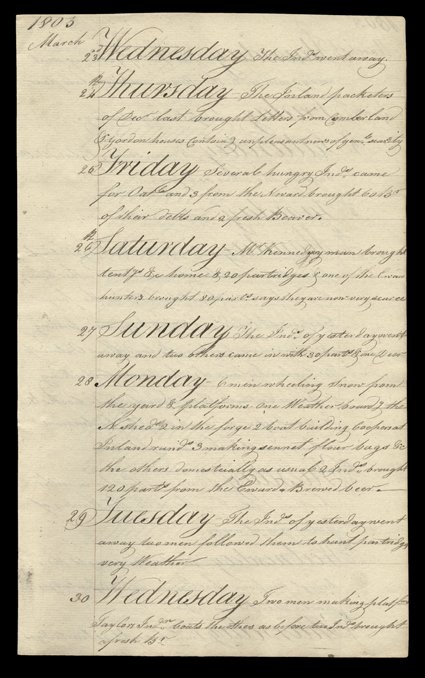 1803
March
23 Wednesday The Inds. went away.
24 Thursday The Inland packeters
of Decr last brought Letters from Cumberland
& Gordon houses
25 Friday Several hungry Inds. came
for Oatl. and 3 from the Nward brought 60 bs.
of their debts and a fresh Beaver.
26 Saturday Mr Kennedys man brought
home & 20 partridges & one of the
hunters brought 80 parts. says they are now very scarce
27 Sunday The Inds. of yesterday went
away and two others came in with 30 parts. & one Deer
28 Monday 6 men wheeling snow from
the yard & platforms One Weather boardg. the
N. Shed 2 in the forge 2 boat building Cooper at
Inland rundts. 3 making sennet flour bags &c
the others domestically as usual 2 Inds. brought
120 parts. from the Eward. Brewed beer.
29 Tuesday The Inds. of yesterday went
away two men followed them to hunt partridges
very Weather
30 Wednesday Two men making
Taylor Indn. coats the others as before two Inds. brought
a fresh